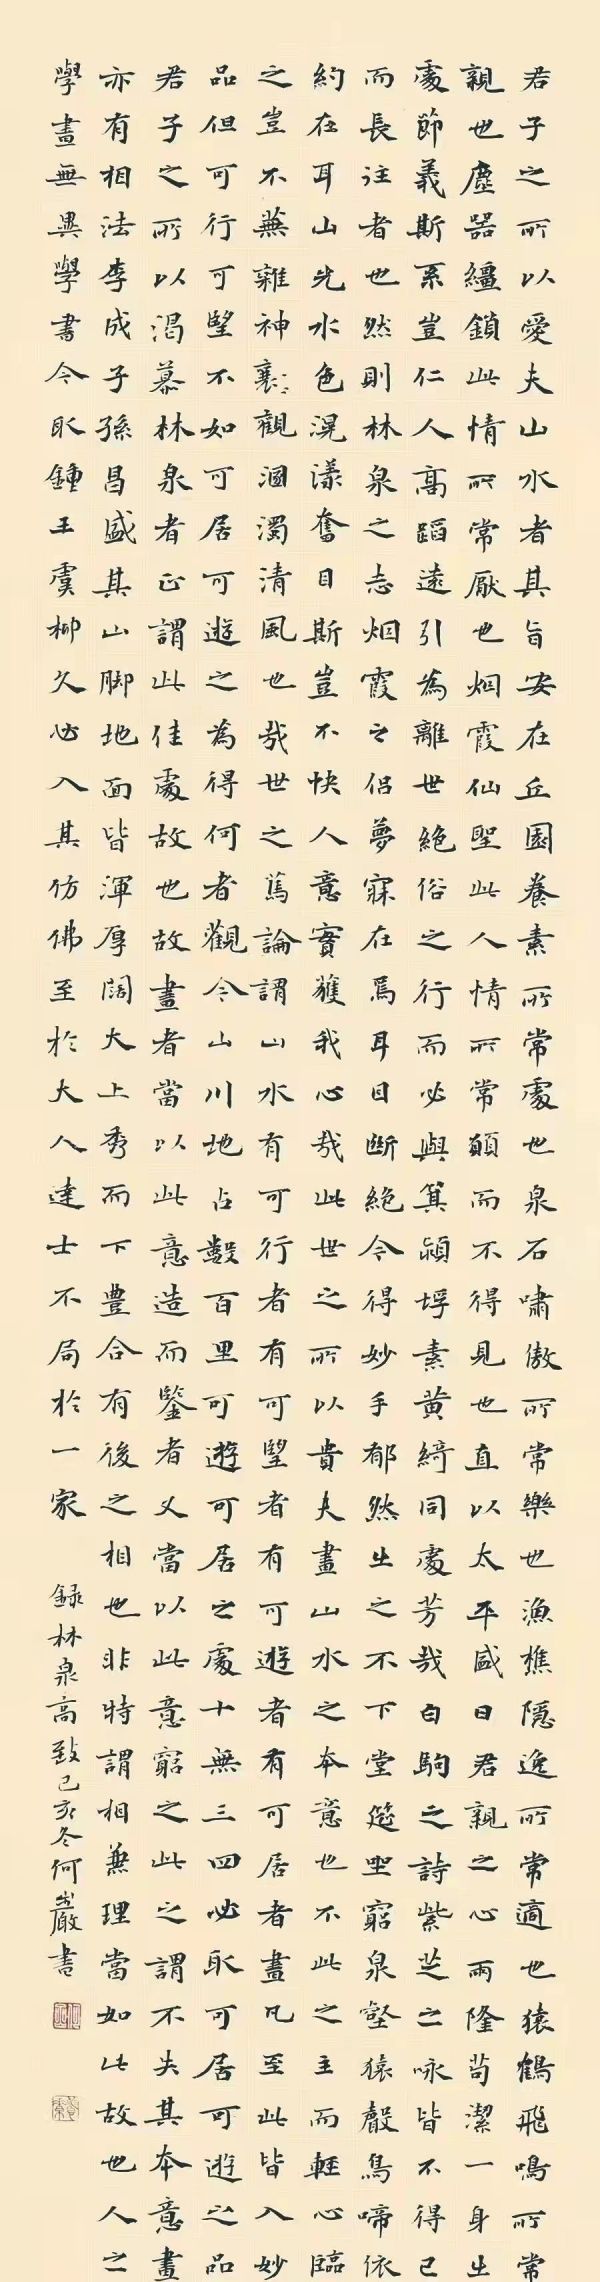 君子之所以愛夫山水者其旨安在丘園養素所常處也泉石嘯傲所常樂也漁樵隱逸所常適也猿鶴飛鳴所常
親也塵囂繮鎖此情所常厭也烟霞仙聖此人情所常願而不得見也直以太平盛日君親之心兩隆苟潔一身出
處節義斯系豈仁人高蹈遠引為離世絕俗之行而必與箕潁埒素黃綺同處芳哉白駒之詩紫芝之咏皆不得已
而長往者也然則林泉之志烟霞之侶夢寐在焉耳目斷絕今得妙手郁然出之不下堂筵坐窮泉壑猿聲鳥啼依
約在耳山光水色滉漾奮目斯豈不快人意實獲我心哉此世之所以貴夫畫山水之本意也不此之主而輕心臨
之豈不蕪雜神觀溷濁清風也哉世之篤論謂山水有可行者有可望者有可遊者有可居者畫凡至此皆入妙
品但可行可望不如可居可遊之為得何者觀今山川地占數百里可遊可居之處十無三四必取可居可遊之品
君子之所以渴慕林泉者正謂此佳處故也故畫者當以此意造而鑒者又當以此意窮之此之謂不失其本意畫
亦有相法李成子孫昌盛其山腳地面皆渾厚闊大上秀而下豐合有後之相也非特謂相兼理當如此故也人之
學畫無異學書今取鍾王虞柳久必入其仿佛至於大人達士不局於一家 錄林泉高致己亥冬何巖書